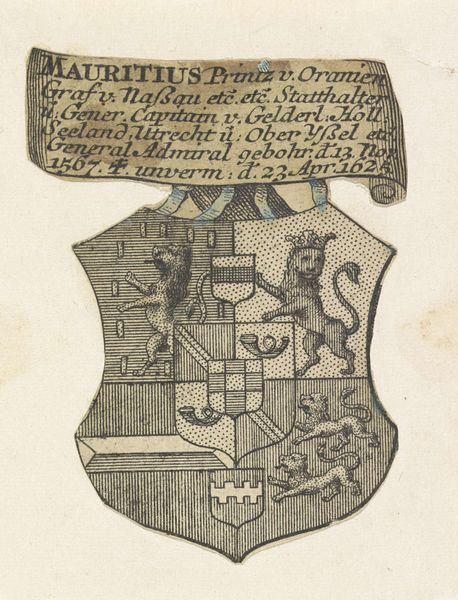 MAURITIUS Printz v. Oranien
Graf v. Naßau etc. etc. Statthalter
u. Gener. Capitain v. Gelderl. Holl
Seeland, Utrecht ü. Ober Yßel etc
General Admiral gebohr. d. 13 Nov
1567. ✝. unverm: d. 23 Apr. 1625